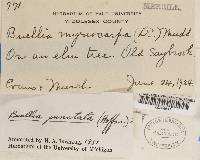 HERBARIUM OF YALE UNIVERSITY
MIDDLESEX COUNTY
Buellia myriocarpa (DC.) Mudd
On an elm tree. Old Saybrook
Evans & Meach. June 24, 1924
Buellia punctata (Hoffm.)
Annotated by H. A. Imshaug, 1951
Herbarium of the University of Michigan